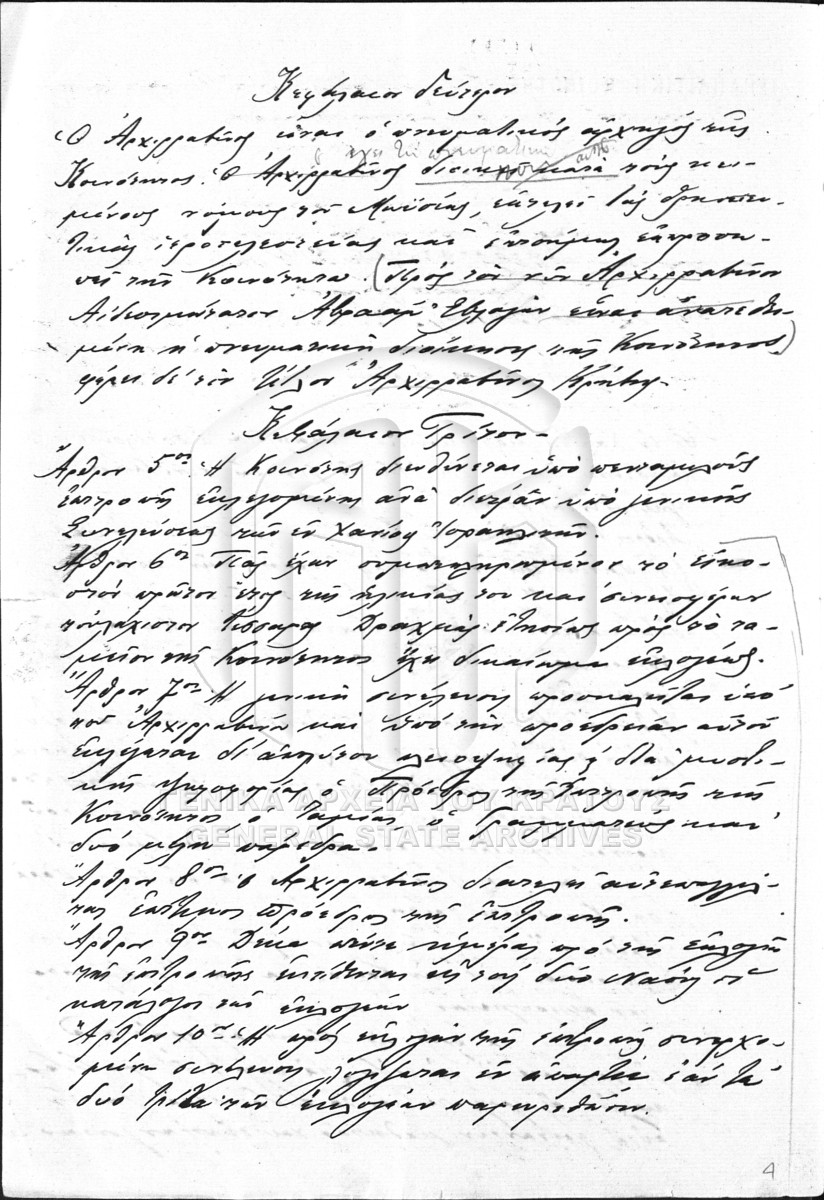 Κεφάλαιον Δεύτερον
Ὁ Ἀρχιρραβῖνος εἶναι ὁ πνευματικὸς ἀρχηγὸς τῆς
ἔχει τὴν πνευματικὴν
Κοινότητος. Ὁ Ἀρχιρραβῖνος διοικεῖ κατὰ τοὺς κει-
μένους νόμους τοῦ Μωϋσέως, ἐκτελεῖ τὰς θρησκευ-
τικὰς ἱεροτελεστείας καὶ ἐπισήμως ἐκπροσω-
πεῖ τὴν Κοινότητα. (Πρὸς τὸν νῦν Ἀρχιρραβῖνον
Αἰδεσιμώτατον Ἀβραὰμ Εὐλαγὸν εἶναι ἀνατεθει-
μένη ἡ πνευματικὴ διοίκησις τῆς Κοινότητος)
φέρει δὲ τὸν τίτλον Ἀρχιρραβῖνος Κρήτης.
Κεφάλαιον Τρίτον.-
Ἄρθρον 5ον Ἡ Κοινότης διευθύνεται ὑπὸ πενταμελοῦς
ἐπιτροπῆς ἐκλεγομένης ἀνὰ διετίαν ὑπὸ γενικῆς
Συνελεύσεως τῶν ἐν Χανίοις Ἰσραηλιτῶν.
Ἄρθρον 6ον Πᾶς ἔχων συμπεπληρωμένον τὸ εἰκο-
στὸν πρῶτον ἔτος τῆς ἡλικίας του καὶ συνεισφέρων
τοὐλάχιστον τέσσαρας Δραχμὰς ἐτησίως πρὸς τὸ τα-
μεῖον τῆς Κοινότητος ἔχει δικαίωμα ἐκλογέως.
Ἄρθρον 7ον Ἡ γενικὴ συνέλευσις προσκαλεῖται ὑπὸ
τοῦ Ἀρχιρραβίνου καὶ ὑπὸ τὴν προεδρείαν αὐτοῦ
ἐκλέγεται δι' ἀπολύτου πλειοψηφίας διὰ μυστι-
κῆς ψηφοφορίας ὁ Πρόεδρος τῆς ἐπιτροπῆς τῆς
Κοινότητος ὁ Ταμίας ὁ Γραμματεὺς καὶ
δύο μέλη πάρεδρα.-
Ἄρθρον 8ον Ὁ Ἀρχιρραβῖνος διατελεῖ αὐτεπαγγέλ-
τως ἐπίτιμος πρόεδρος τῆς ἐπιτροπῆς.
Ἄρθρον 9ον Δέκα πέντε ἡμέρας πρὸ τῆς ἐκλογῆς
τῆς ἐπιτροπῆς ἐκτίθενται εἰς τοὺς δύο Ναοὺς οἱ
κατάλογοι τῶν ἐκλογέων
Ἄρθρον 10ον Ἡ πρὸς ἐκλογὴν τῆς ἐπιτροπῆς συνερχο-
μένη συνέλευσις λογίζεται ἐν ἀπαρτίᾳ ἐὰν τὰ
δύο τρίτα τῶν ἐκλογέων παρευρεθῶσιν.
ΓΕΝΙΚΑ ΑΡΧΕΙΑ ΤΟΥ ΚΡΑΤΟΥΣ
GENERAL STATE ARCHIVES
4